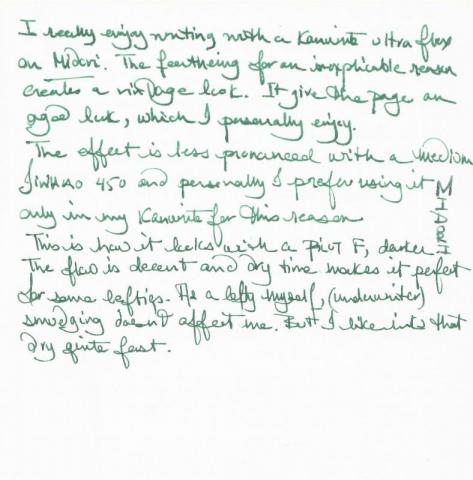 I really enjoy writing with a Kanwrite ultra flex
on Midori. The feartheing for an inexplicable reason
creates a vintage look. It give the page an
aged look, which I personally enjoy.
The effect is less pronounced with a medium
JINHAO 450 and personally I prefer using it
only in my Kanwrite for this reason
This is how it looks with a PILOT F, darker.
The flow is decent and dry time makes it perfect
for some lefties. As a lefty myself, (underwriter)
smudging doesn't affect me. But I like inks that
dry quite fast.
MIDORI